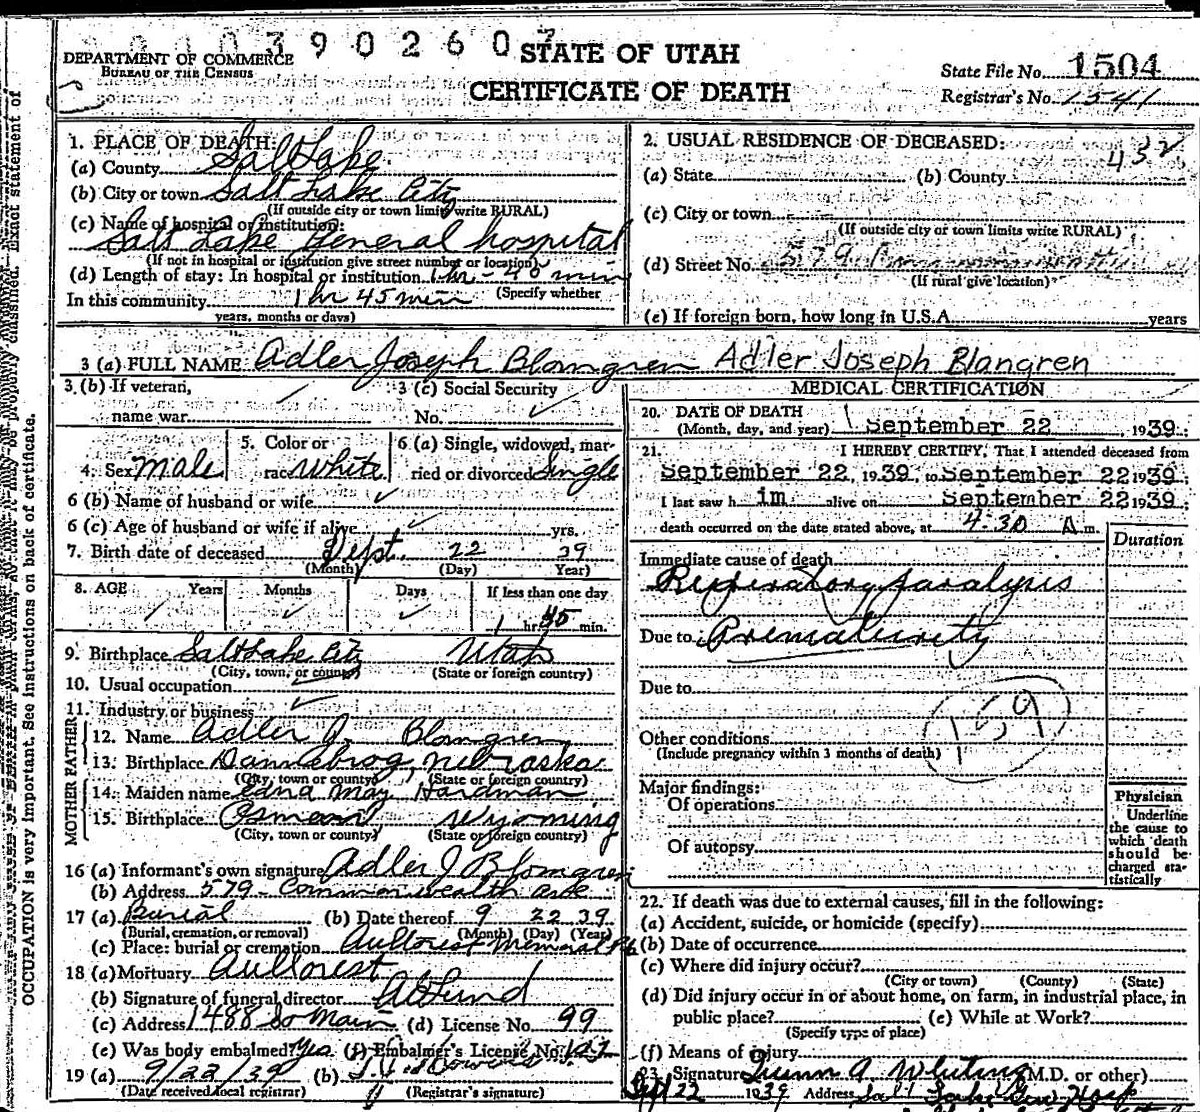 0 3 9 0 2 6 0 7
STATE OF UTAH
CERTIFICATE OF DEATH
DEPARTMENT OF COMMERCE
BUREAU OF THE CENSUS
State File No. 1504
Registrar's No. 1541
OCCUPATION is very important. See instructions on back of certificate.
properly classified. Exact statement of
1. PLACE OF DEATH:
(a) County Salt Lake
(b) City or town Salt Lake City
(If outside city or town limits write RURAL)
(c) Name of hospital or institution:
Salt Lake General hospital
(If not in hospital or institution give street number or location)
(d) Length of stay: In hospital or institution 1 hr - 45 min
(Specify whether
In this community 1 hr 45 min
years, months or days)
2. USUAL RESIDENCE OF DECEASED:
432
(a) State (b) County
(c) City or town
(If outside city or town limits write RURAL)
(d) Street No. 579
(If rural give location)
(e) If foreign born, how long in U.S.A. years
3 (a) FULL NAME Adler Joseph Blomgren Adler Joseph Blangren
3 (b) If veteran, 3 (c) Social Security
name war No.
4. Sex male 5. Color or race White 6 (a) Single, widowed, married or divorced Single
6 (b) Name of husband or wife
6 (c) Age of husband or wife if alive yrs.
7. Birth date of deceased Sept. 22 39
(Month) (Day) Year)
8. AGE Years Months Days If less than one day
1 hr. 45 min.
9. Birthplace Salt Lake City Utah
(City, town, or county) (State or foreign country)
10. Usual occupation
11. Industry or business
FATHER
12. Name Adler J. Blomgren
13. Birthplace Dannebrog, Nebraska
(City, town or county) (State or foreign country)
MOTHER
14. Maiden name Edna May Hardman
15. Birthplace Osmond Wyoming
(City, town or county) (State or foreign country)
16 (a) Informant's own signature Adler J Blomgren
(b) Address 579 - Commonwealth ave
17 (a) Burial (b) Date thereof 9 22 39
(Burial, cremation, or removal) (Month) (Day) (Year)
(c) Place: burial or cremation Aultorest Memorial Pk
18 (a) Mortuary Aultorest
(b) Signature of funeral director
(c) Address 1488 So Main (d) License No. 99
(e) Was body embalmed? Yes (f) Embalmer's License No. 127
19 (a) 9/22/39 (b)
(Date received local registrar) (Registrar's signature)
MEDICAL CERTIFICATION
20. DATE OF DEATH
(Month, day, and year) September 22, 1939
21. I HEREBY CERTIFY, That I attended deceased from
September 22, 1939, to September 22 1939;
I last saw him alive on September 22 1939;
death occurred on the date stated above, at 4:30 A m.
Duration
Immediate cause of death
Respiratory paralysis
Due to Prematurity
Due to
159
Other conditions
(Include pregnancy within 3 months of death)
Major findings:
Of operations
Of autopsy
Physician
Underline
the cause to
which death
should be
charged sta-
tistically
22. If death was due to external causes, fill in the following:
(a) Accident, suicide, or homicide (specify)
(b) Date of occurrence
(c) Where did injury occur?
(City or town) (County) (State)
(d) Did injury occur in or about home, on farm, in industrial place, in
public place? (e) While at Work?
(Specify type of place)
(f) Means of injury
23. Signature A. Whiting (M.D. or other)
Sept 22 1939 Address Salt Lake Gen Hosp